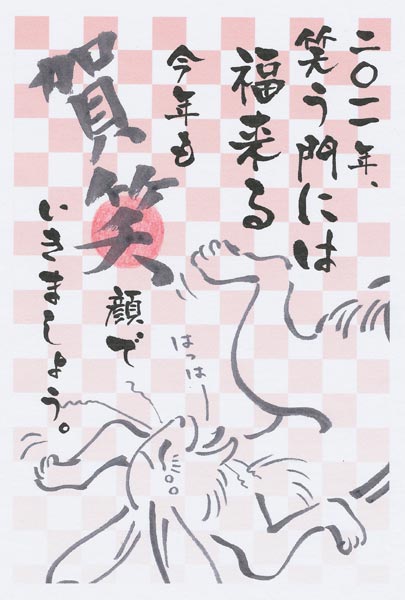 二〇一一年、
笑う門には
福来る
今年も
賀笑
顔で
いきましょう。
はっはー